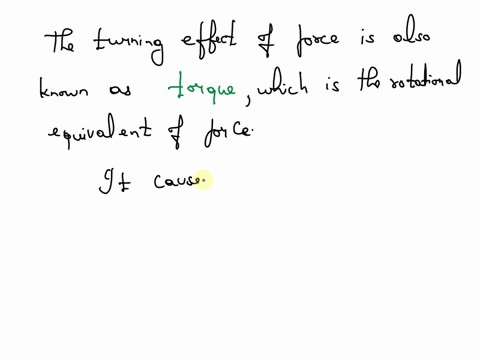 The turning effect of force is also
known as torque, which is the rotational
equivalent of force.
It cause